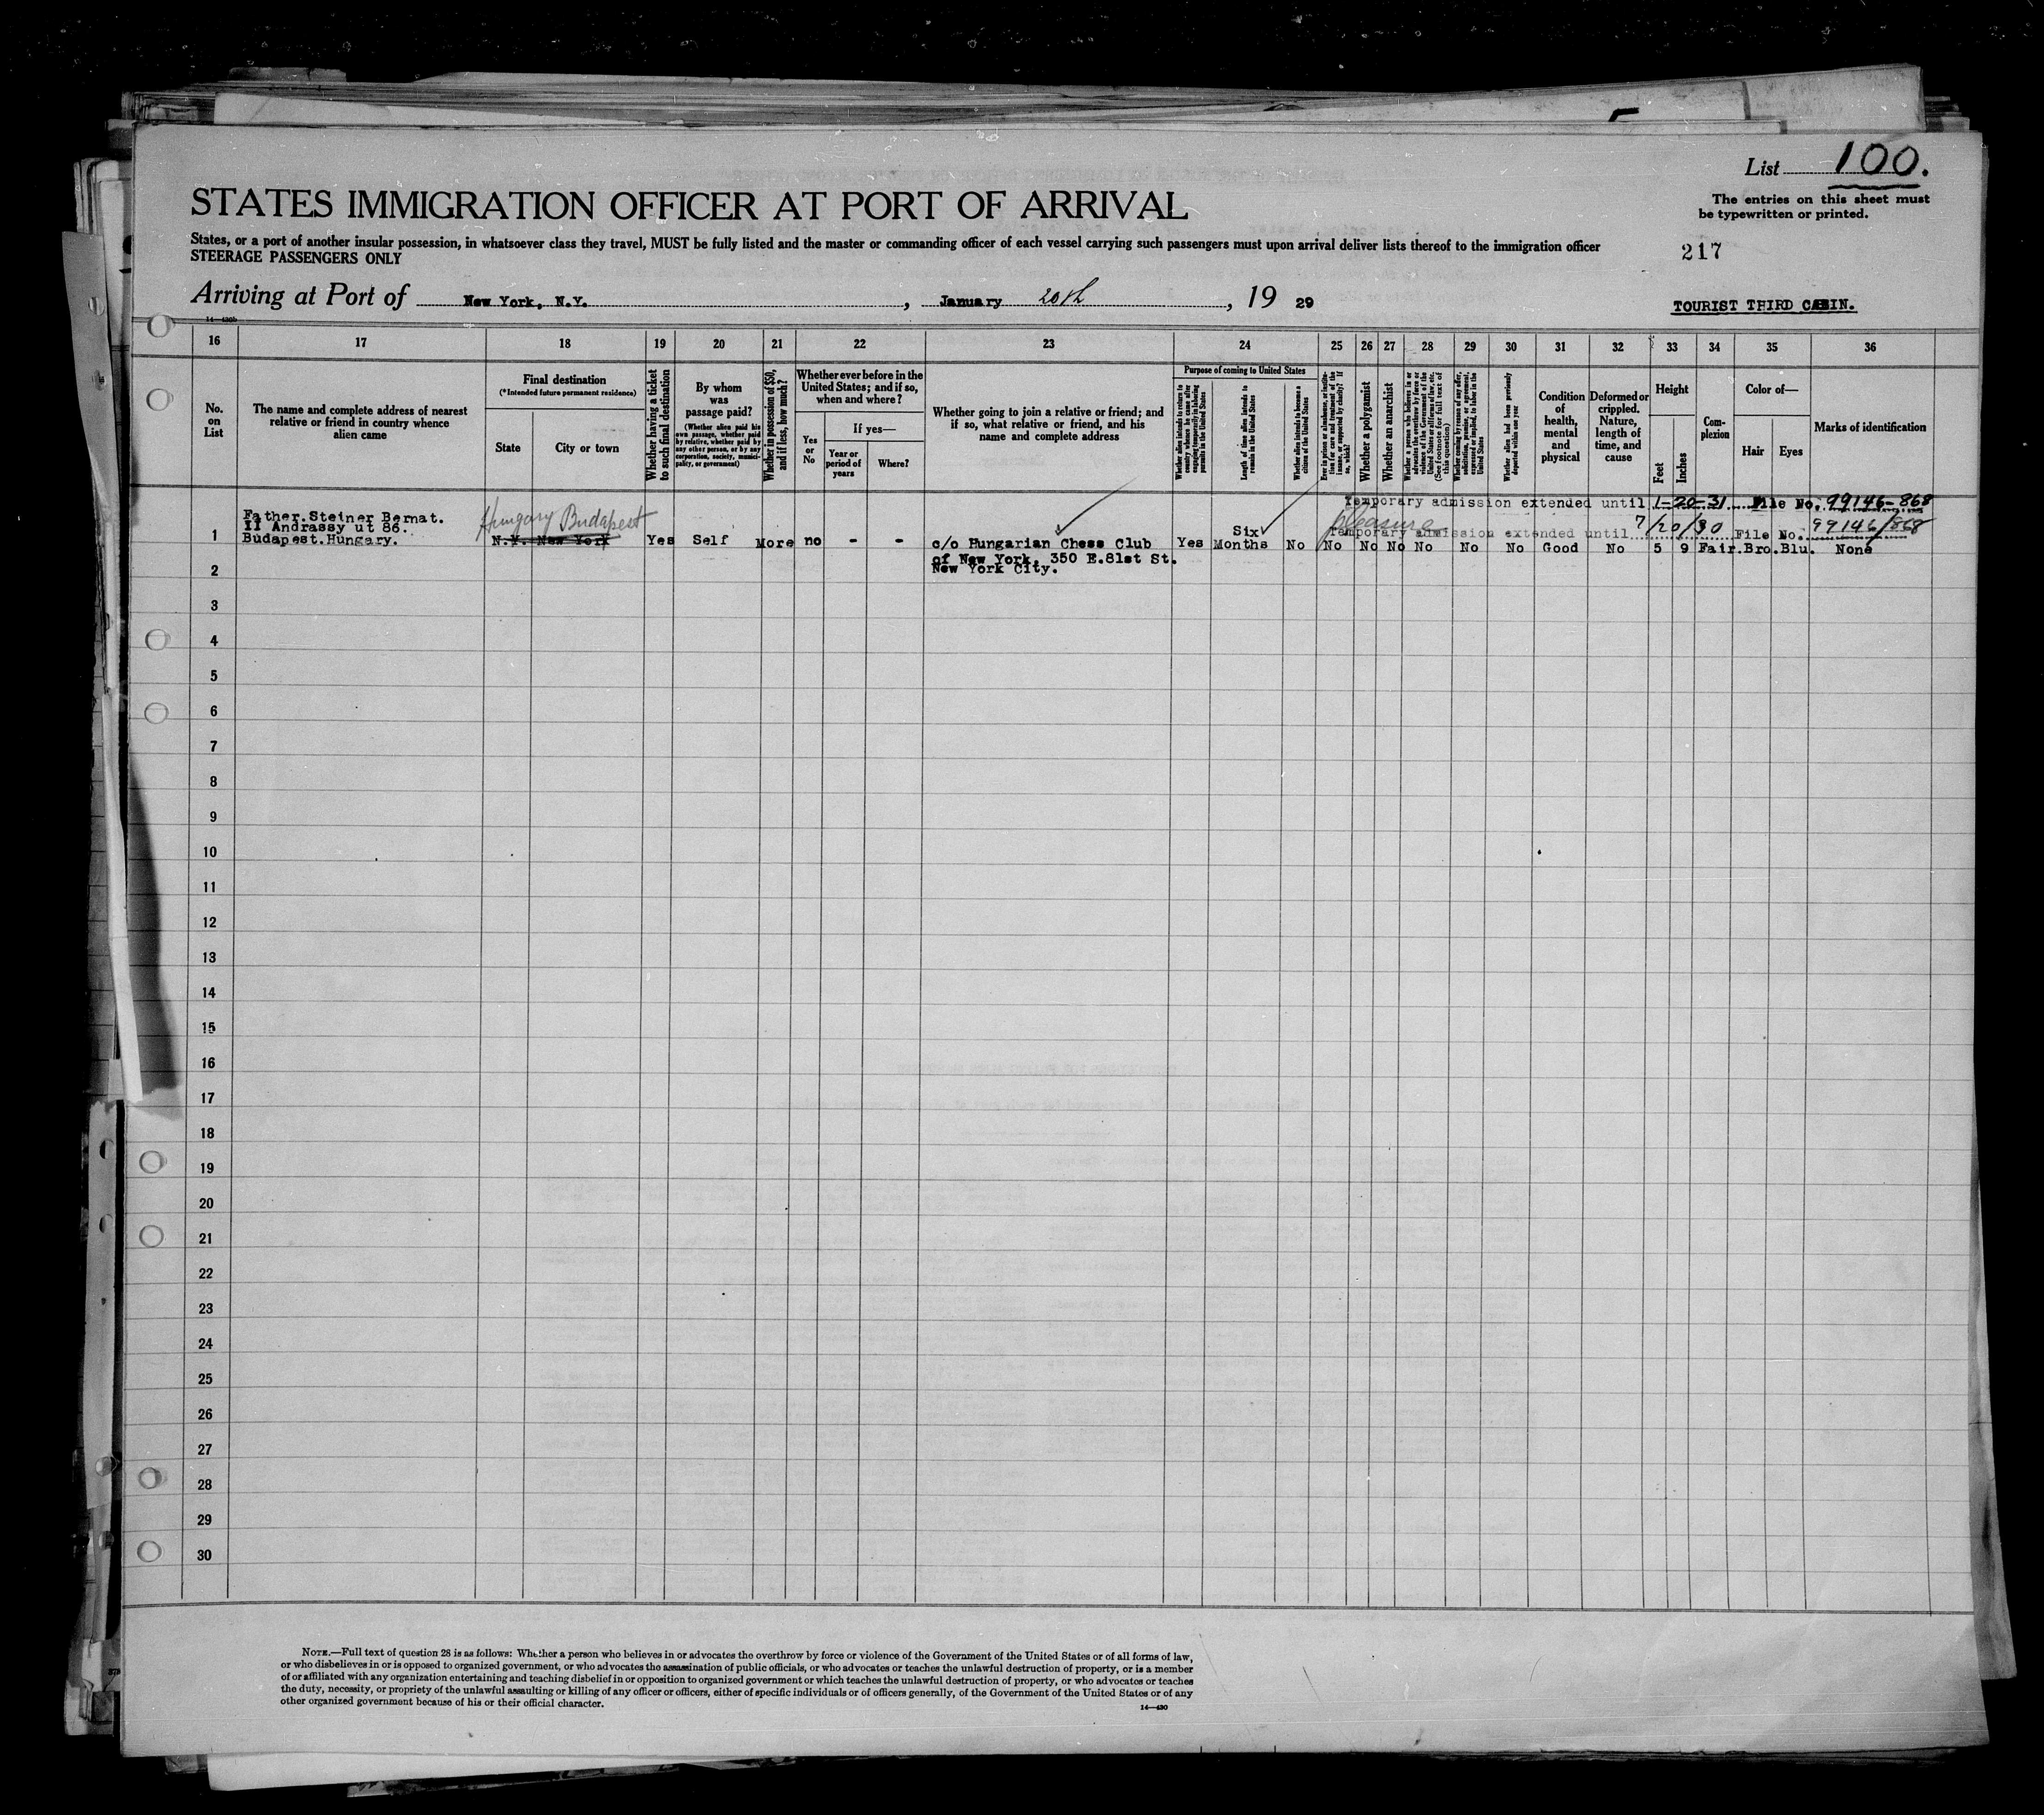 List 100.
The entries on this sheet must
be typewritten or printed.
STATES IMMIGRATION OFFICER AT PORT OF ARRIVAL
States, or a port of another insular possession, in whatsoever class they travel, MUST be fully listed and the master or commanding officer of each vessel carrying such passengers must upon arrival deliver lists thereof to the immigration officer
STEERAGE PASSENGERS ONLY
217
Arriving at Port of New York, N.Y., January 20th, 19 29
TOURIST THIRD CABIN.
14—430b
16 17 18 19 20 21 22 23 24 25 26 27 28 29 30 31 32 33 34 35 36
No. on List
The name and complete address of nearest
relative or friend in country whence
alien came
Final destination
(*Intended future permanent residence)
State
City or town
Whether having a ticket
to such final destination
By whom
was
passage paid?
(Whether alien paid his
own passage, whether paid
by relative, whether paid by
any other person, or by any
corporation, society, munici-
pality, or government)
Whether in possession of $50,
and if less, how much?
Whether ever before in the
United States; and if so,
when and where?
Yes
or
No
If yes—
Year or
period of
years
Where?
Whether going to join a relative or friend; and
if so, what relative or friend, and his
name and complete address
Purpose of coming to United States
Whether alien intends to return to
country whence he came after
engaging temporarily in laboring
pursuits in the United States
Length of time alien intends to
remain in the United States
Whether alien intends to become a
citizen of the United States
Whether a polygamist
Whether an anarchist
Whether alien had been previously
deported within one year
Condition
of
health,
mental
and
physical
Deformed or
crippled.
Nature,
length of
time, and
cause
Height
Feet
Inches
Com-
plexion
Color of—
Hair
Eyes
Marks of identification
Temporary admission extended until 1-20-31 File No. 99146-868
Father.Steiner Bernat.
II Andrassy ut 86.
Budapest.Hungary.
Hungary Budapest
pleasure
Temporary admission extended until 7/20/30 File No. 99146/868
1 N.Y. New York Yes Self More no - - c/o Hungarian Chess Club Yes Six Months No No No No No No No Good No 5 9 Fair.Bro.Blu. None
of New York. 350 E.81st St.
New York City.
2
3
4
5
6
7
8
9
10
11
12
13
14
15
16
17
18
19
20
21
22
23
24
25
26
27
28
29
30
NOTE.—Full text of question 28 is as follows: Whether a person who believes in or advocates the overthrow by force or violence of the Government of the United States or of all forms of law,
or who disbelieves in or is opposed to organized government, or who advocates the assassination of public officials, or who advocates or teaches the unlawful destruction of property, or is a member
of or affiliated with any organization entertaining and teaching disbelief in or opposition to organized government or which teaches the unlawful destruction of property, or who advocates or teaches
the duty, necessity, or propriety of the unlawful assaulting or killing of any officer or officers, either of specific individuals or of officers generally, of the Government of the United States or of any
other organized government because of his or their official character.
14—430